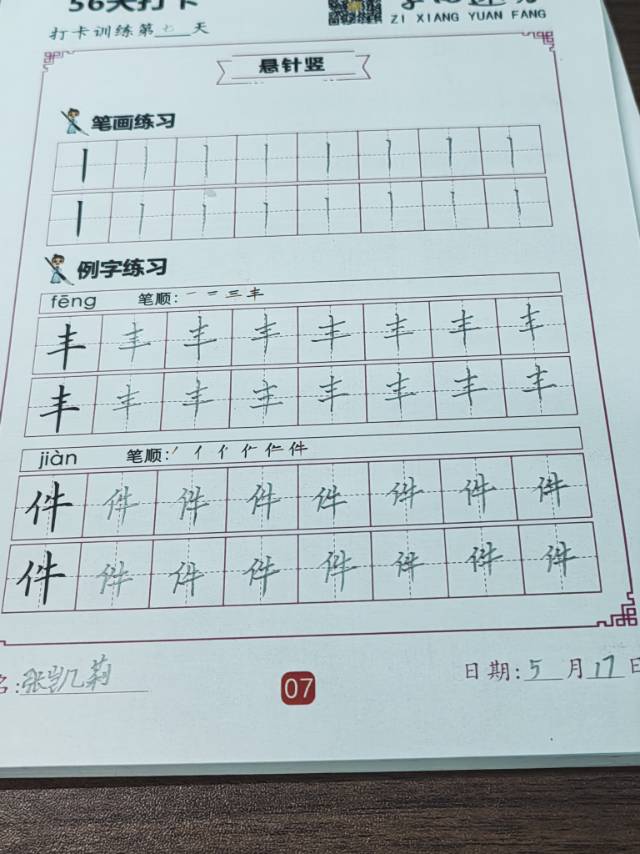 56天打卡
ZI XIANG YUAN FANG
打卡训练第七天
悬针竖
笔画练习
丨 丨 丨 丨 丨 丨 丨 丨
丨 丨 丨 丨 丨 丨 丨 丨
例字练习
fēng 笔顺: 一 二 三 丰
丰 丰 丰 丰 丰 丰 丰 丰
丰 丰 丰 丰 丰 丰 丰 丰
jiàn 笔顺:
件 件 件 件 件 件 件 件
件 件 件 件 件 件 件 件
名:张凯莉
07
日期:5月17日